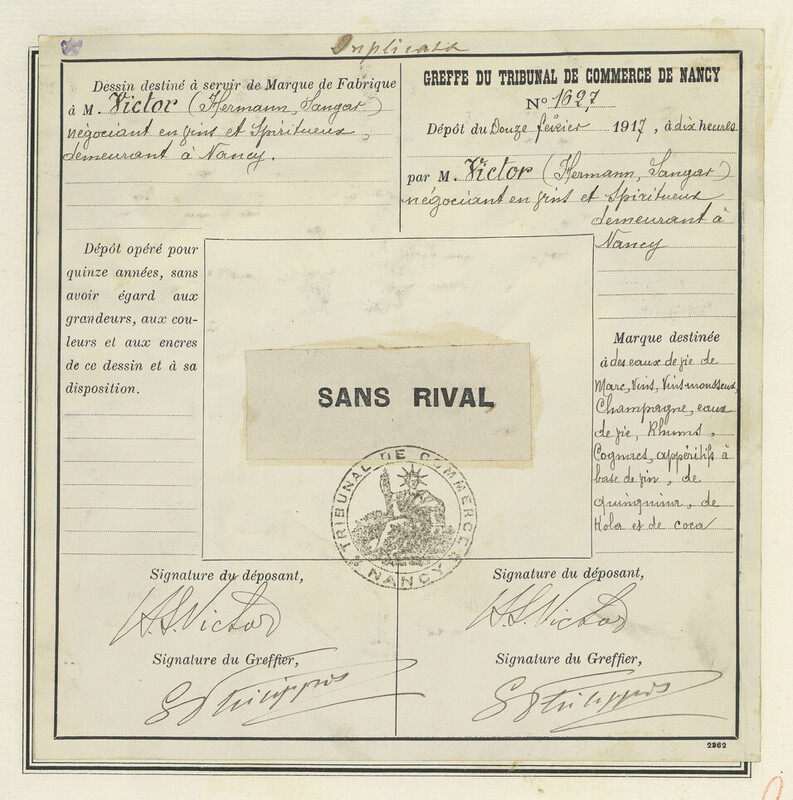 Duplicata
Dessin destiné à servir de Marque de Fabrique
à M. Victor (Hermann, Sangar)
négociant en vins et Spiritueux,
demeurant à Nancy.
GREFFE DU TRIBUNAL DE COMMERCE DE NANCY
N° 1627
Dépôt du Douze février 1917, à dix heures
par M. Victor (Hermann, Sangar)
négociant en vins et spiritueux
demeurant à
Nancy
Dépôt opéré pour
quinze années, sans
avoir égard aux
grandeurs, aux cou-
leurs et aux encres
de ce dessin et à sa
disposition.
SANS RIVAL
TRIBUNAL DE COMMERCE
NANCY
Marque destinée
à des eaux de vie de
Marc, Vins, Vins mousseux,
Champagne, eaux
de vie, Rhums,
Cognacs, appéritifs à
base de vin, de
quinquina, de
Kola et de coca
Signature du déposant,
H.S. Victor
Signature du Greffier,
Signature du déposant,
H.S. Victor
Signature du Greffier,
2362